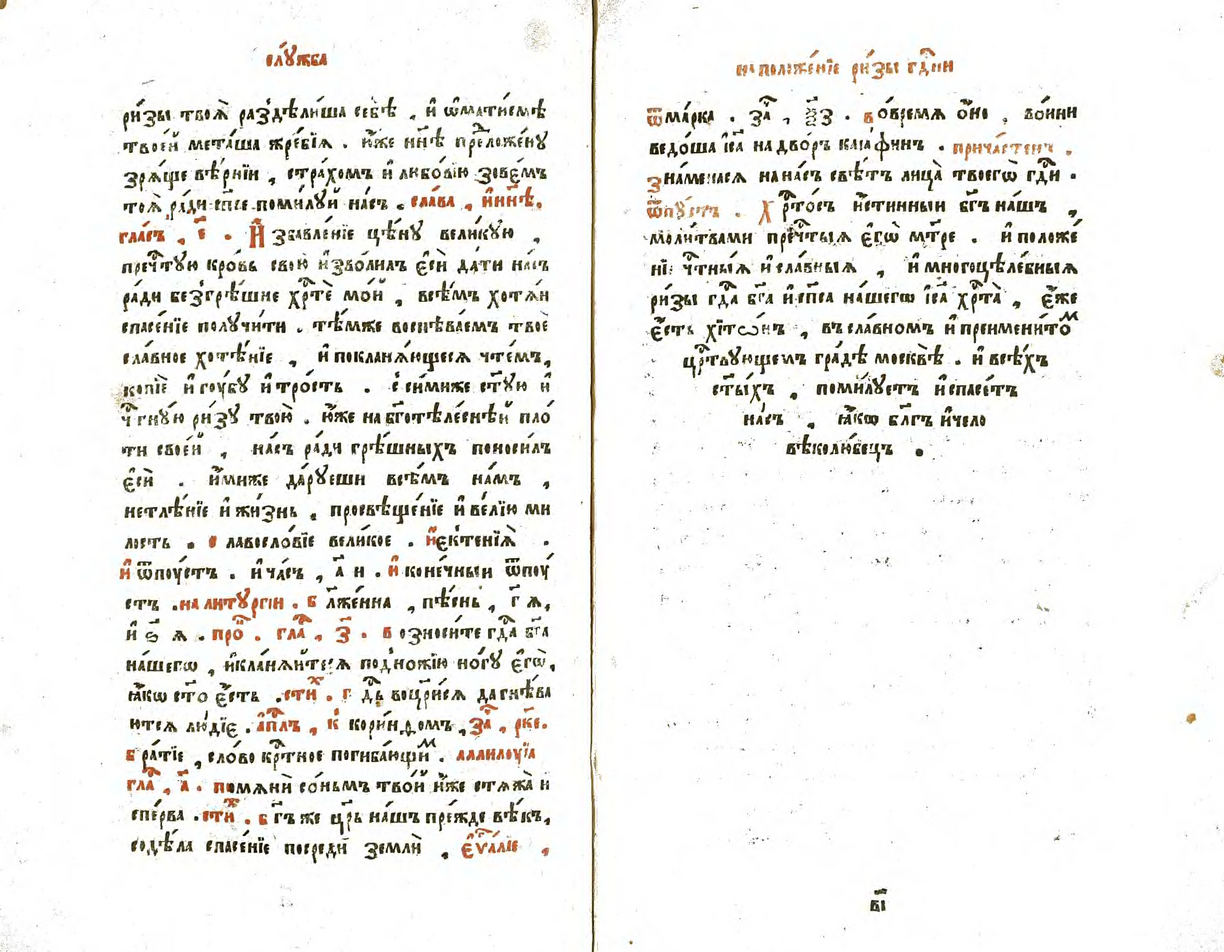 слꙋ́жба
ри́зы твоѧ̀ раздѣли́ша себѣ̀ , и҆ ѡ҆мати́смѣ
твое́й мета́ша жре́бїѧ . ꙗ҆́же нн҃ѣ преⷣложе́нꙋ
зрѧ́ще вѣ́рнїи , стра́хомъ и҆ любо́вїю зове́мъ
тоѧ̀ ра́ди сп҃се поми́лꙋй на́съ . сла́ва , и҆ нн҃ѣ,
гла́съ , є҃ . И҆ збавле́нїе цѣ́нꙋ вели́кꙋю ,
пречⷭ҇тꙋю кро́вь свою̀ и҆зво́лилъ є҆сѝ да́ти на́съ
ра́ди безгрѣ́шне хрⷭ҇тѐ мо́й , всѣ́мъ хотѧ̀й
спасе́нїе полꙋчи́ти . тѣ́мже воспѣва́емъ твоѐ
сла́вное хотѣ́нїе , и҆ покланѧ́ющесѧ чте́мъ,
копїѐ и҆ гꙋ́бꙋ и҆ тро́сть . с си́миже ст҃ꙋю и҆
чⷭ҇тнꙋ́ю ри́зꙋ твою̀ . ю҆́же на бг҃отѣле́снѣй пло́
ти свое́й , на́съ ра́ди грѣ́шныхъ поноси́лъ
є҆сѝ . и҆́миже да́рꙋеши всѣ́мъ на́мъ ,
нетлѣ́нїе и҆ жи́знь , просвѣще́нїе и҆ ве́лїю ми
лость . с лавосло́вїе вели́кое . и҆ є҆ктенїѧ̀ .
и҆ ѿпꙋ́стъ . и҆ ча́съ , а҃ и . и҆ коне́чныи ѿпꙋ́
стъ . на литꙋргі́и . б лже́нна , пѣ́снь , г҃ ѧ,
и҆ ѕ҃ ѧ . проⷦ҇ . глⷭ҇а , з҃ . в озноси́те гдⷭ҇а бг҃а
на́шегѡ , и҆ кланѧ́йтесѧ подно́жїю но́гꙋ є҆гѡ̀,
ꙗ҆́кѡ ст҃о є҆́сть . стиⷯ . г дⷭ҇ь воцр҃и́сѧ да гнѣ́ва
ютсѧ лю́дїе . а҆пⷭ҇лъ , к кори́нѳомъ , заⷱ҇ , рк҃е.
б ра́тїе , сло́во крⷭ҇тное погиба́ющиⷨ . аллилꙋ́їа
глⷭ҇а , а҃ . помѧнѝ со́ньмъ тво́й и҆́же стѧжа̀ и
спе́рва . стиⷯ . б г҃ъ же цр҃ь на́шъ пре́жде вѣ́къ,
содѣ́ла спасе́нїе посредѝ землѝ , є҆ѵⷢ҇а́лїе ,
на положе́нїе ри́зы гдⷭ҇ни
ѿ ма́рка . заⷱ҇ , ѯ҃з . в о́время о҆́но , во́ини
ведо́ша і҆с҃а на дво́ръ каїа́финъ . прича́стенъ .
з намена́сѧ на на́съ свѣ́тъ лица̀ твоегѡ̀ гдⷭ҇и .
ѿпꙋ́стъ . х рⷭ҇то́съ и҆́стинныи бг҃ъ на́шъ ,
моли́твами пречⷭ҇тыѧ є҆гѡ̀ мт҃ре . и҆ положе́
нїѧ чⷭ҇тны́ѧ и҆ сла́вныѧ , и҆ многоцѣле́бныѧ
ри́зы гдⷭ҇а бг҃а и҆ сп҃са на́шегѡ і҆с҃а хрⷭ҇та̀ , є҆́же
є҆́сть хїтѡ́нъ , в сла́вномъ и҆ преимени́тоⷨ
црⷭ҇твꙋющемъ гра́дѣ москвѣ̀ . и҆ всѣ́хъ
ст҃ы́хъ , поми́лꙋетъ и҆ спасе́тъ
на́съ , ꙗ҆́кѡ бл҃гъ и҆ чело
вѣколю́бецъ .
в҃і